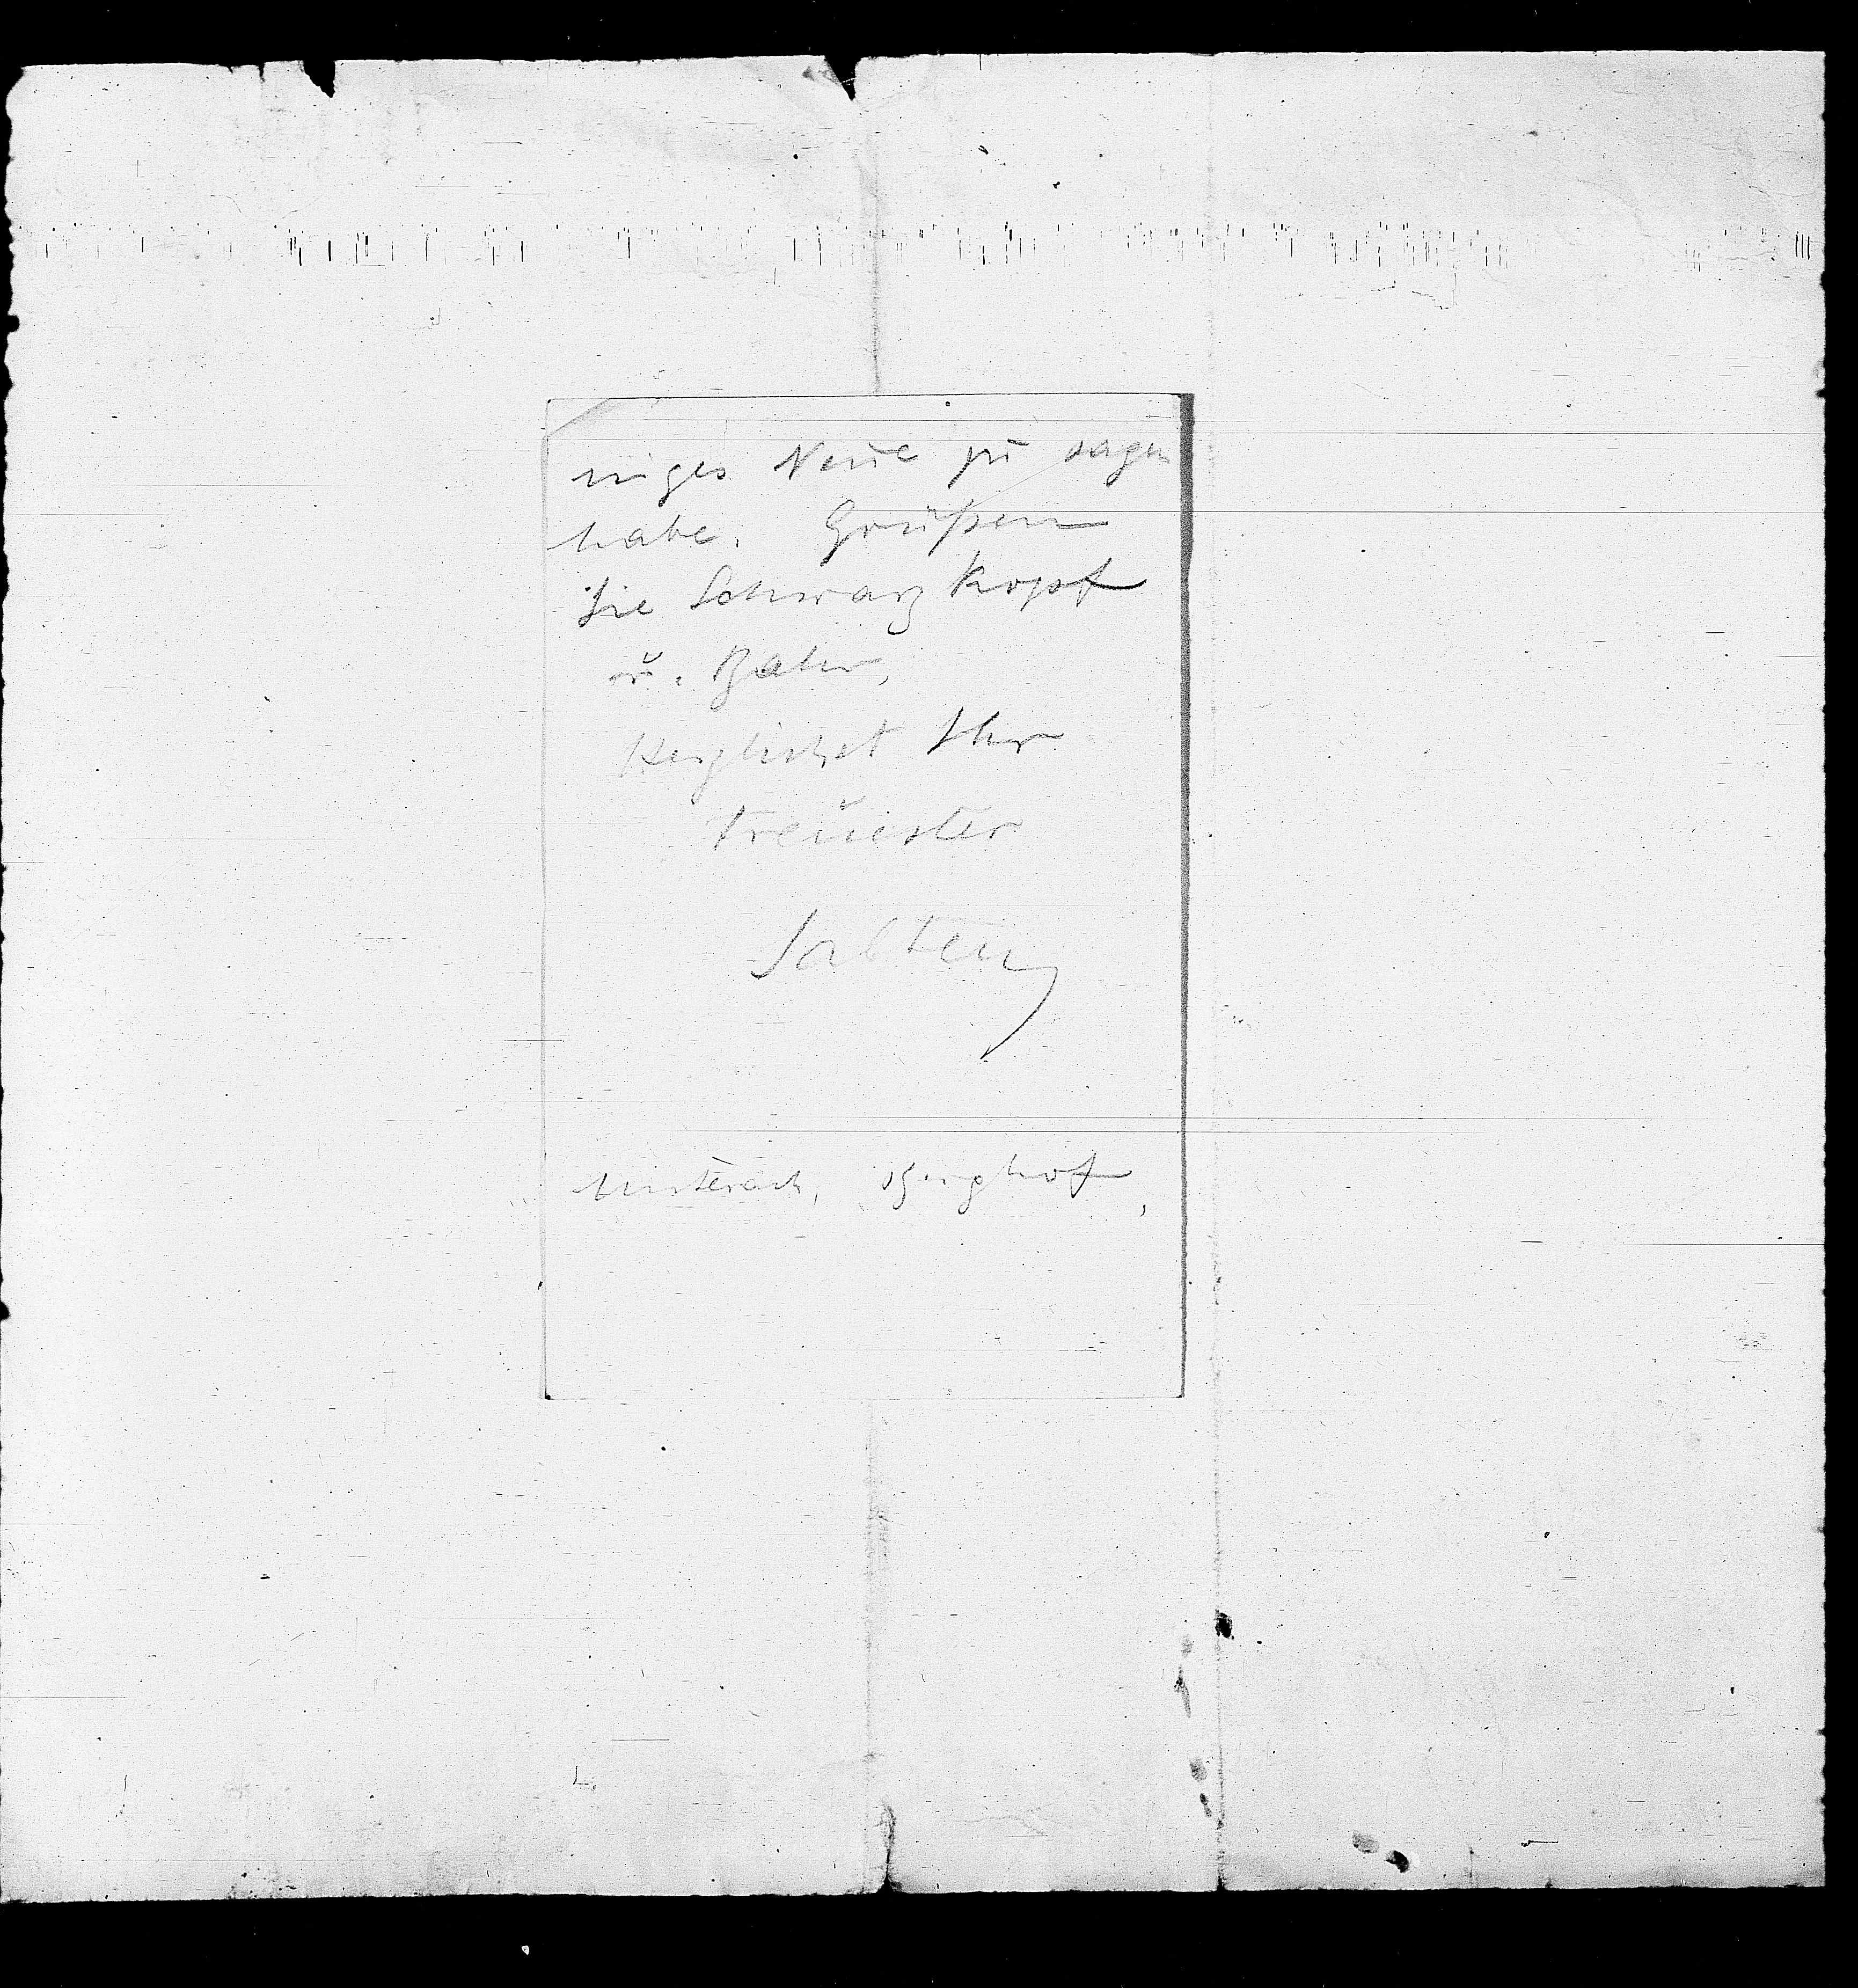 niges Neue zu sagen
habe. Grüßen
Sie Schwarzkopf
u. Bahr,
Herzlichst Ihr
treuester
Salten
Unterach, Berghof,